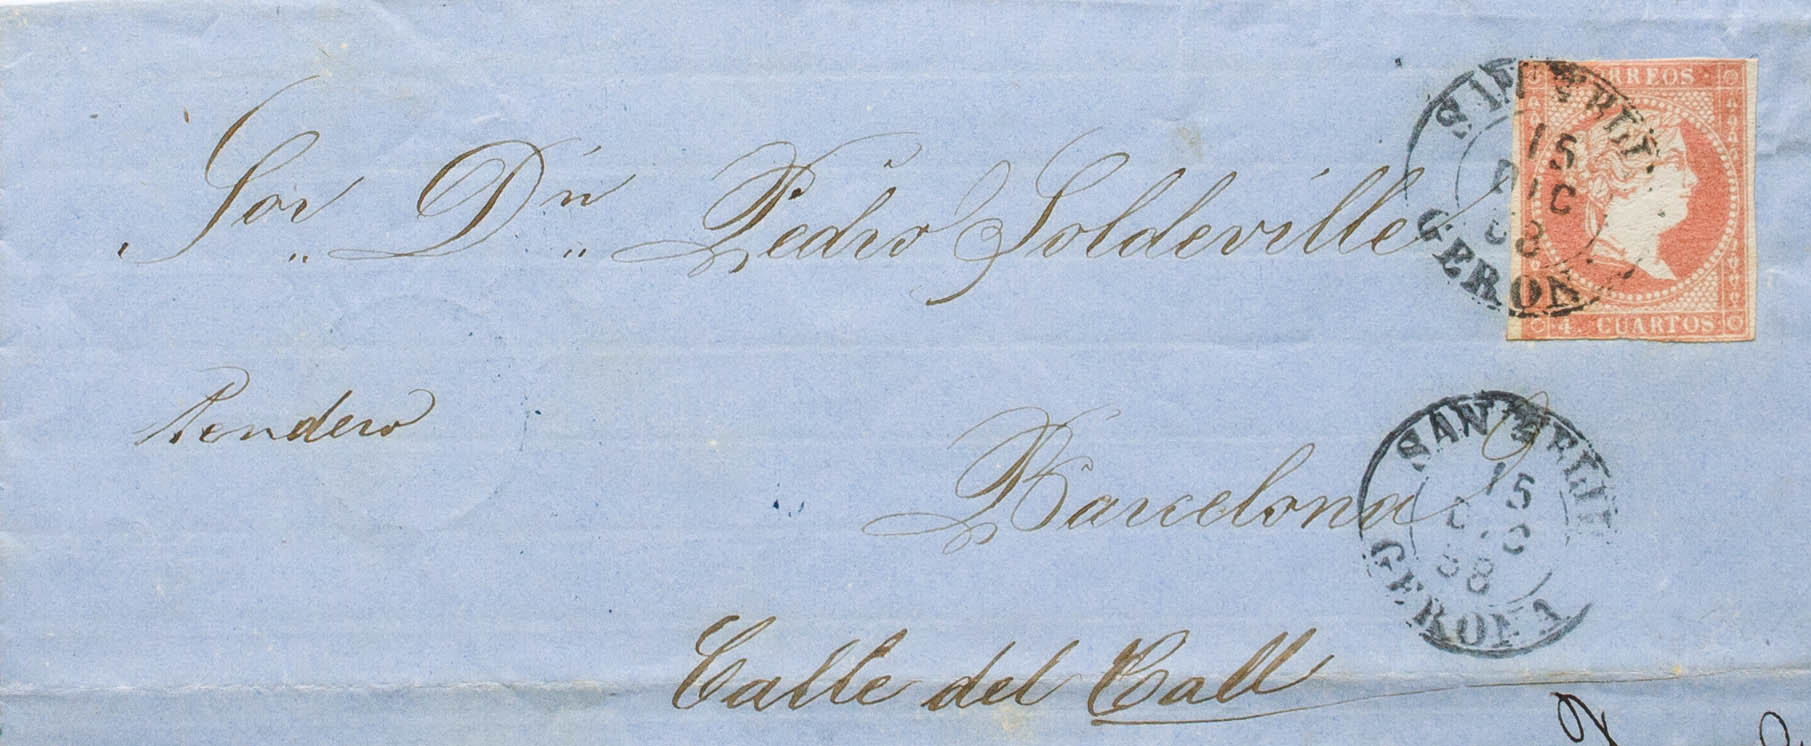 Sor Dn Pedro Soldeville
Tendero
Barcelona
Calle del Call
CORREOS
4. CUARTOS
SAN FELIU
15
DIC
58
GERONA
SAN FELIU
15
DIC
58
GERONA